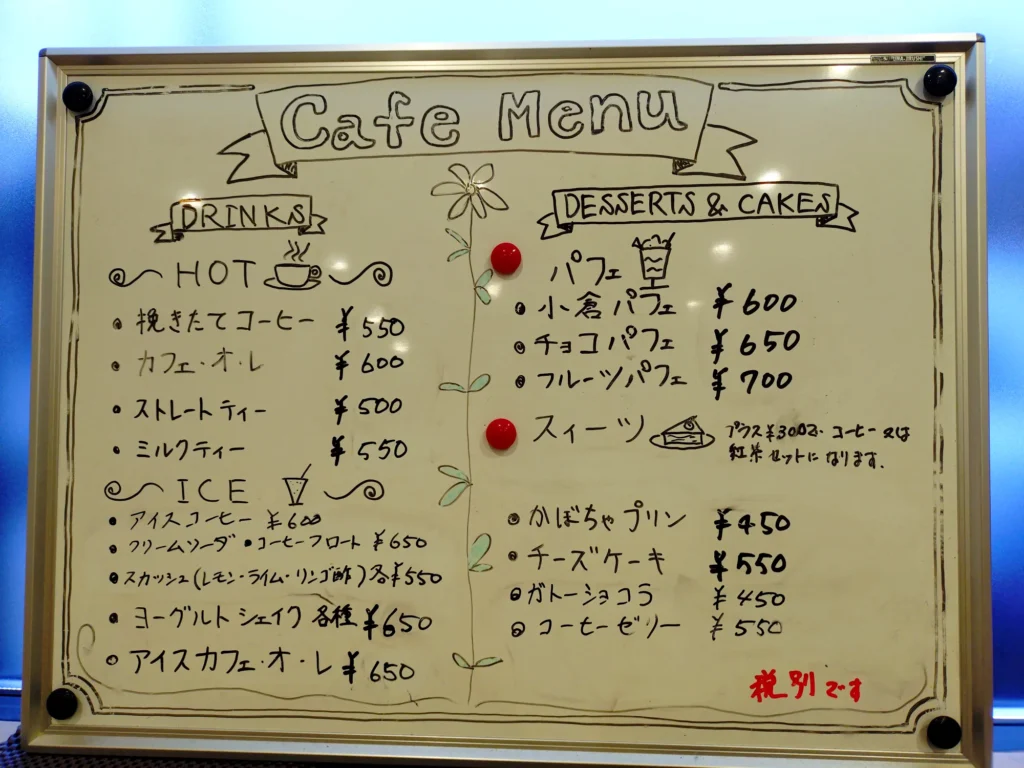 Cafe Menu
DRINKS
HOT
・挽きたてコーヒー ¥550
・カフェ・オ・レ ¥600
・ストレートティー ¥500
・ミルクティー ¥550
ICE
・アイスコーヒー ¥600
・クリームソーダ・コーヒーフロート ¥650
・スカッシュ(レモン・ライム・リンゴ酢)各¥550
・ヨーグルトシェイク 各種 ¥650
・アイスカフェ・オ・レ ¥650
DESSERTS & CAKES
パフェ
・小倉パフェ ¥600
・チョコパフェ ¥650
・フルーツパフェ ¥700
スィーツ
プラス¥300で、コーヒー又は
紅茶セットになります.
・かぼちゃプリン ¥450
・チーズケーキ ¥550
・ガトーショコラ ¥450
・コーヒーゼリー ¥550
税別です